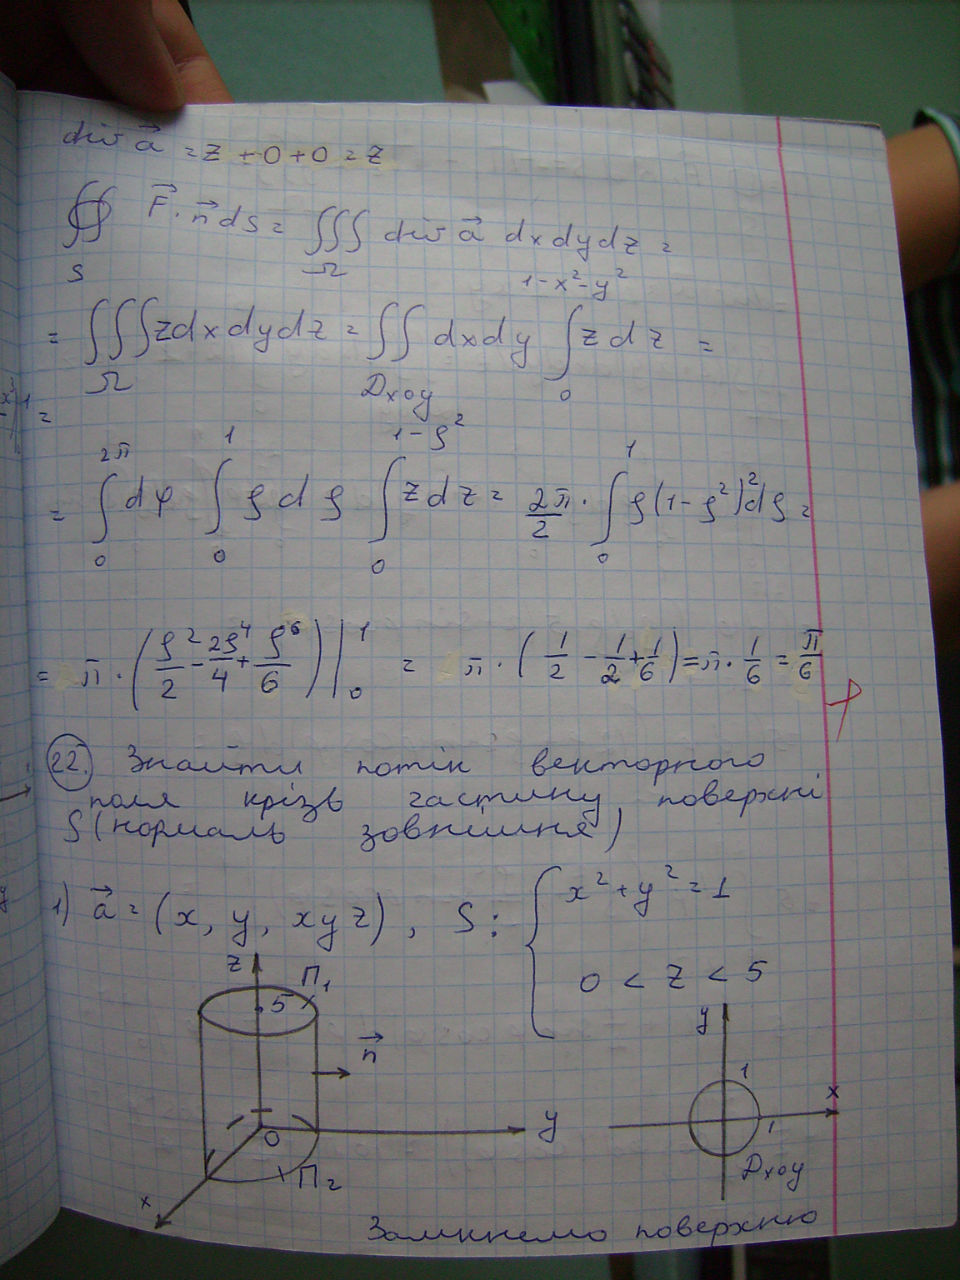 div a⃗ = z + 0 + 0 = z
∯_S F⃗·n⃗ dS = ∭_Ω div a⃗ dxdydz =
= ∭_Ω z dxdydz = ∬_{Dxoy} dxdy ∫_0^{1-x²-y²} z dz =
= ∫_0^{2π} dφ ∫_0^1 ρ dρ ∫_0^{1-ρ²} z dz = 2π/2 · ∫_0^1 ρ(1-ρ²)² dρ =
= π · (ρ²/2 - 2ρ⁴/4 + ρ⁶/6) |_0^1 = π · (1/2 - 1/2 + 1/6) = π · 1/6 = π/6
22. Знайти потік векторного
поля крізь частину поверхні
S (нормаль зовнішня)
1) a⃗ = (x, y, xyz), S: { x² + y² = 1
0 < z < 5
z 5 П₁
n⃗
0 y
x П₂
y
1
x
1
Dxoy
Замкнемо поверхню